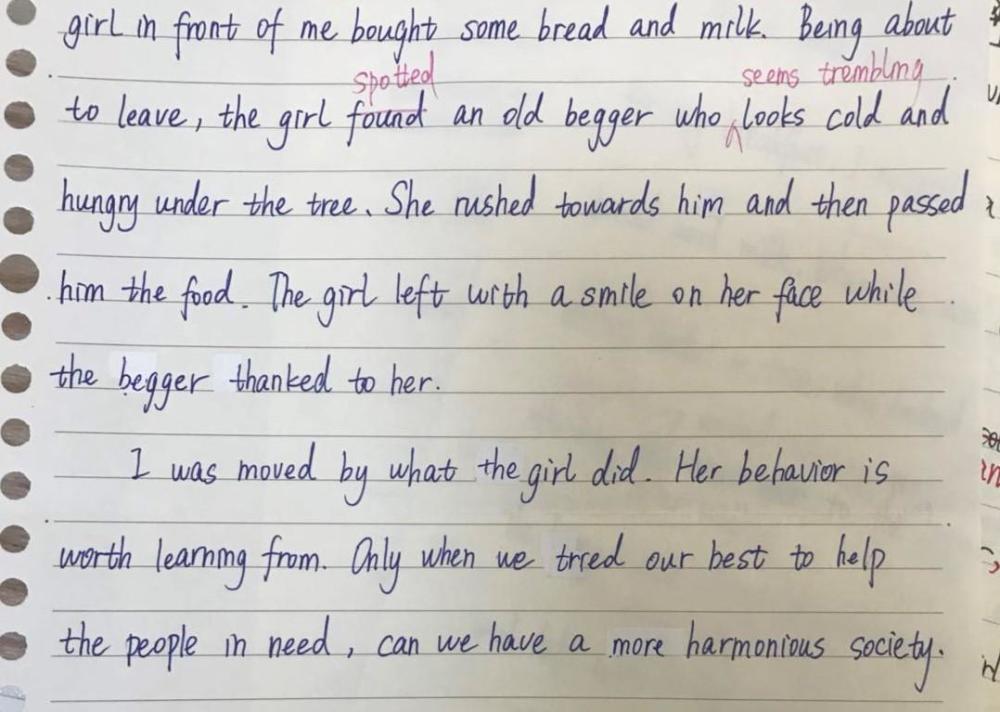 girl in front of me bought some bread and milk. Being about
spotted seems trembling
to leave, the girl found an old begger who looks cold and
hungry under the tree. She rushed towards him and then passed
him the food. The girl left with a smile on her face while
the begger thanked to her.
I was moved by what the girl did. Her behavior is
worth learning from. Only when we tried our best to help
the people in need, can we have a more harmonious society.